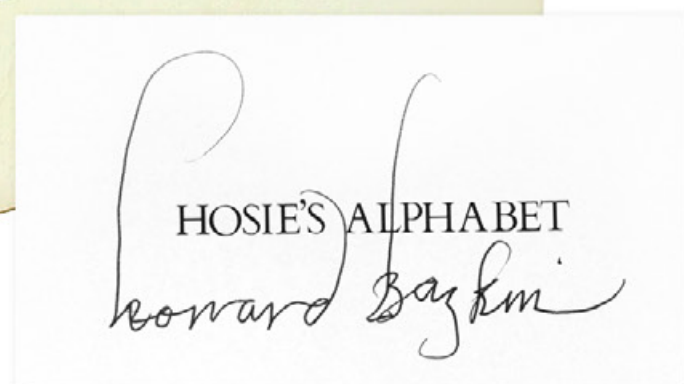 HOSIE'S ALPHABET
Leonard Baskin